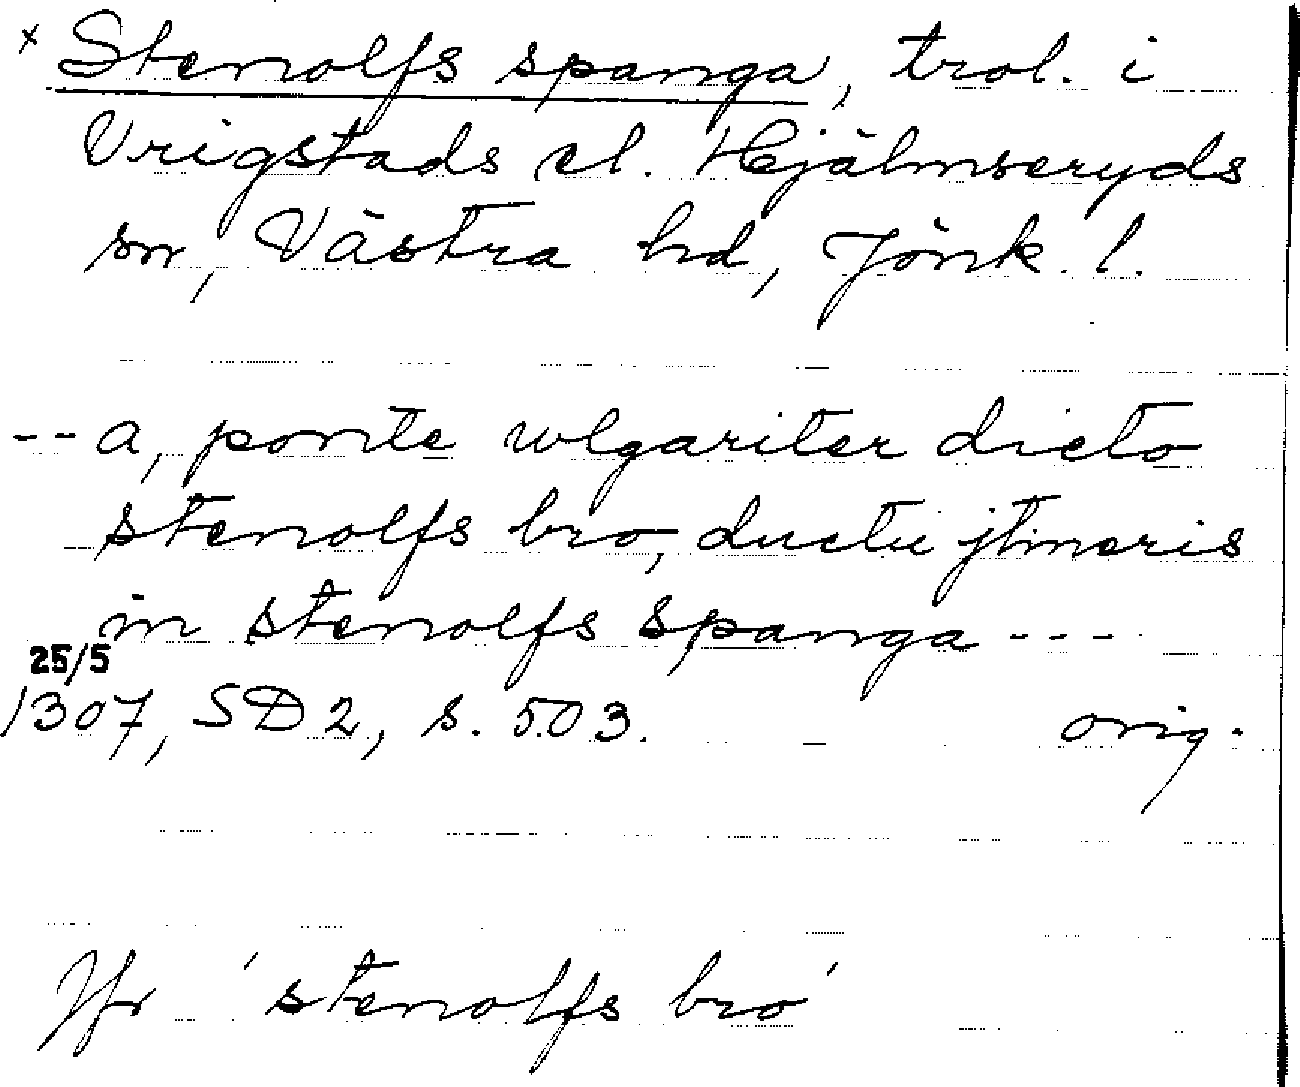 x Stenolfs spanga, trol. i
Vrigstads el. Hjälmseryds
sn, Västra hd, Jönk. l.
-- a, ponte wlgariter dicto
stenolfs bro, ductu jtineris
in stenolfs spanga ---
25/5
1307, SD 2, s. 503. orig.
Jfr 'stenolfs bro'